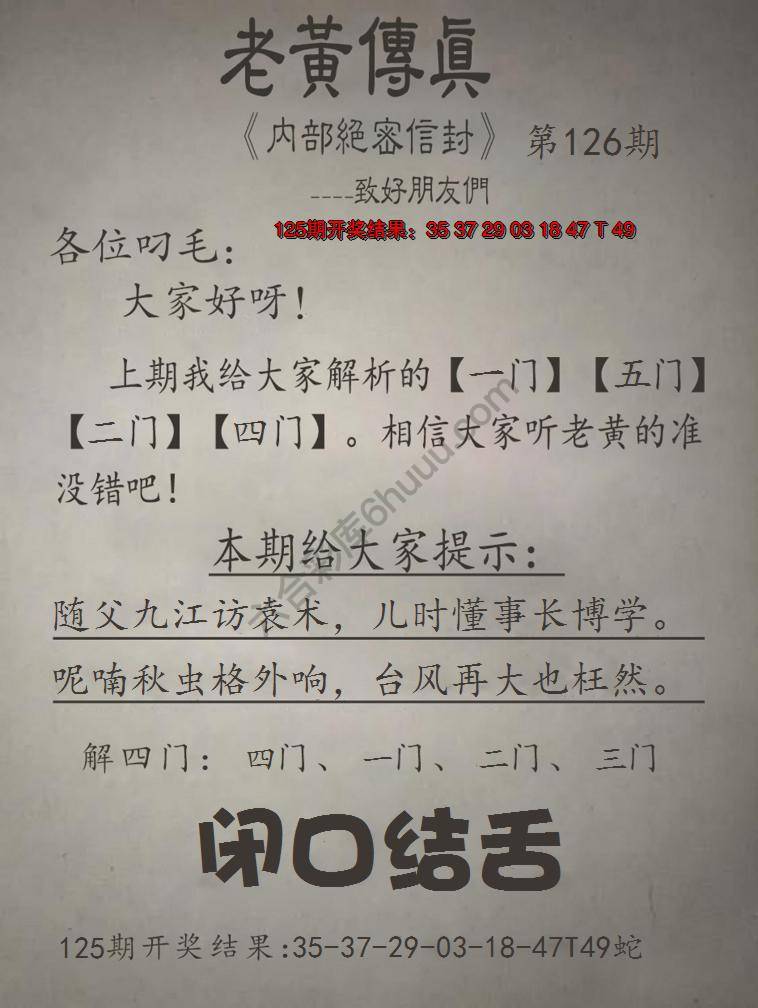 老黃傳眞
《内部絕密信封》 第126期
----致好朋友們
125期开奖结果：35 37 29 03 18 47 T 49
各位叼毛：
大家好呀！
上期我给大家解析的【一门】【五门】
【二门】【四门】。相信大家听老黄的准
没错吧！
本期给大家提示：
随父九江访袁术，儿时懂事长博学。
呢喃秋虫格外响，台风再大也枉然。
解四门： 四门、 一门、 二门、 三门
闭口结舌
125期开奖结果:35-37-29-03-18-47T49蛇
六合彩库6huuu.com